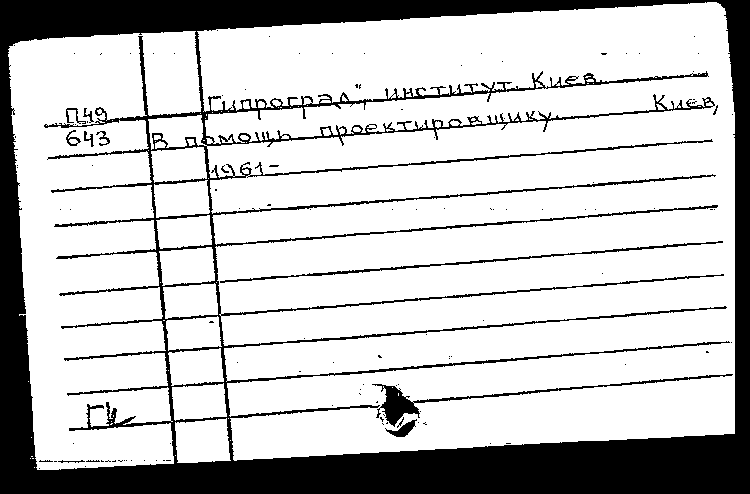 Гипроград", институт. Киев.
П49
643 В помощь проектировщику. Киев,
1961-
ГК